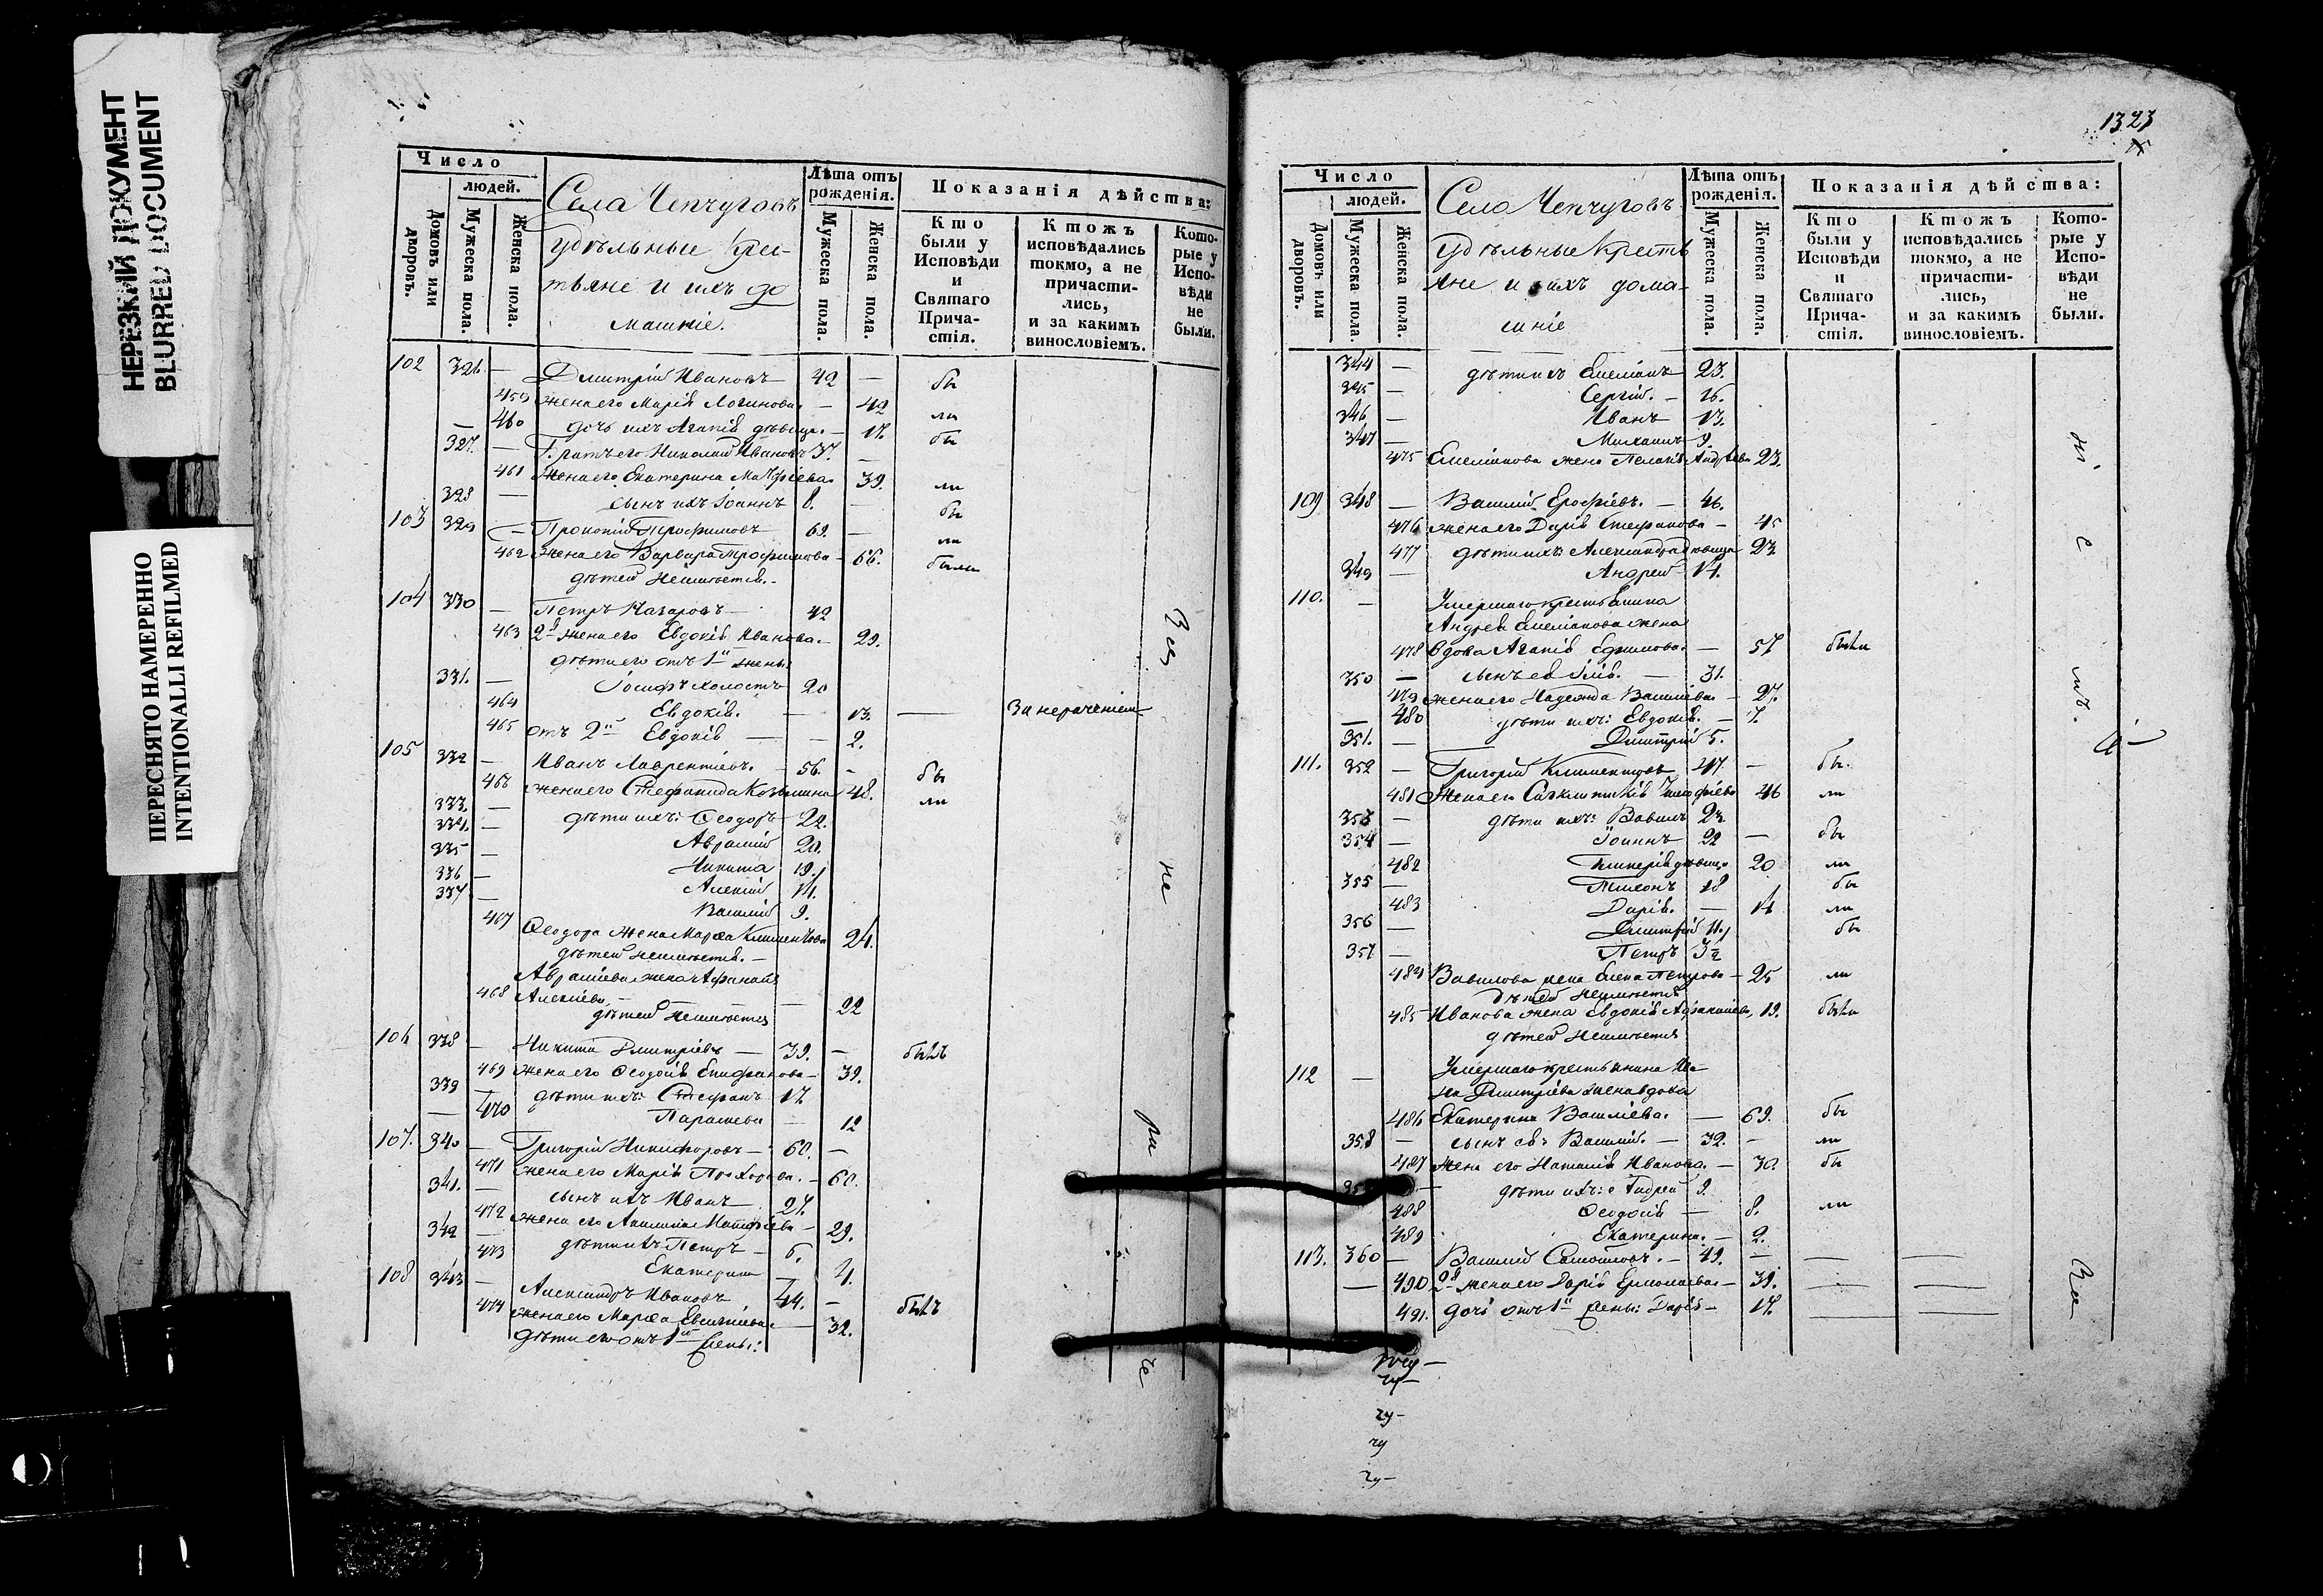 НЕРЕЗКИЙ ДОКУМЕНТ
BLURRED DOCUMENT
ПЕРЕСНЯТО НАМЕРЕННО
INTENTIONALLI REFILMED
Число
людей.
Домовъ или дворовъ.
Мужеска пола.
Женска пола.
Села Чепчуговъ
Удѣльные Крес-
тьяне и ихъ до
машніе.
Лѣта отъ рожденія.
Мужеска пола.
Женска пола.
Показанія дѣйства:
Кто были у Исповѣди и Святаго Причастія.
Ктожъ исповѣдались токмо, а не причастились, и за какимъ винословіемъ.
Которые у Исповѣди не были.
102 326 — Дмитрій Ивановъ 42 — бы
459 жена его Марія Логинова — 42 ли
460 дочь ихъ Агапія дѣвица — 17. бы
327. — Братъ его Николай Ивановъ 37. —
461 Жена его Екатерина 39. ли
328 — сынъ ихъ Іоаннъ 8. — бы
103 329 — Прокопій Трофимовъ 69. — ли
462 Жена его Варвара Трофимова — 66. были
дѣтей неимѣетъ.
104 330 — Петръ Назаровъ — 42
463 2я жена его Евдокія Иванова — 29.
дѣти его отъ 1й жены:
331. — Іосифъ холостъ 20
464 Евдокія. — 13. — За нераченіемъ
465 отъ 2й Евдокія — — 2.
105 332 — Иванъ Лаврентіевъ. 56. — бы
466 жена его Стефанида Козьмина 48. ли
333. — дѣти ихъ: Ѳеодоръ 22.
334. — Аврамій 20.
335 — Никита 19.
336 — Алексій 14.
337 — Василій 9.
467 Ѳеодора жена Марѳа Климентова 24.
дѣтей неимѣетъ. —
Авраміева жена
468 Алексіева, — — 22
дѣтей неимѣетъ
106 338 — Никита Дмитріевъ — 39. — былъ
469 жена его Ѳеодосія Епифанова — 39.
339 — дѣти ихъ: Стефанъ 17.
— 470 Парасковья — 12
107. 340 — Григорій Никифоровъ — 60. —
471 жена его Марія Прохорова. — 60.
341. — сынъ ихъ Иванъ 27.
472 жена его Акилина — 29.
342 — дѣти ихъ Петръ — 6.
473 Екатерина — 4.
108 343 — Александръ Ивановъ 44. — былъ
474 жена его Марѳа — 32.
дѣти его отъ 1й жены:
За не ра че
1323
Число
людей.
Домовъ или дворовъ.
Мужеска пола.
Женска пола.
Села Чепчуговъ
Удѣльные Кресть
яне и ихъ дома-
шніе
Лѣта отъ рожденія.
Мужеска пола.
Женска пола.
Показанія дѣйства:
Кто были у Исповѣди и Святаго Причастія.
Ктожъ исповѣдались токмо, а не причастились, и за какимъ винословіемъ.
Которые у Исповѣди не были.
344 — дѣти ихъ Емеліанъ 23.
345 — Сергій. — 16.
346 — Иванъ 13.
347 — Михаилъ 9.
475 Емеліанова жена Пелагія Андреева 23.
109 348 — Василій Ерофіевъ. — 46.
476 жена его Дарія Стефанова — 45
477 дѣти ихъ: Александра дѣвица 23.
349 — Андрей 14.
110. — Умершаго крестьянина
Андрея Емеліанова жена
478 вдова Агапія Ефимова. — 57 была
350 — сынъ ея Илія. — 31.
479 жена его Надежда Василіева — 27.
— 480 дѣти ихъ: Евдокія. — 7.
351. — Дмитрій 5.
111. 352 — Григорій Климентовъ 47. — бы
481 Жена его 46 ли
353 — дѣти ихъ: Вавилъ 23.
354 — Іоаннъ 22 — бы
482 Гликерія дѣвица 20 ли
355 — 18 бы
483 Дарія. — 14 ли
356 — Дмитрій 11. бы
357 — Петръ 3½
484 Вавилова жена Елена Петрова — 25 ли
дѣтей неимѣетъ
485 Иванова жена Евдокія 19. была
дѣтей неимѣетъ
112 — Умершаго крестьянина Ива-
на Дмитріева жена вдова
486 Екатерина Василіева. — 69. бы
358 — сынъ ея Василій. — 32. — ли
487 жена его Наталія Иванова. — 30. бы
дѣти ихъ: Андрей 9.
488 Ѳеодосія — 8. ли
489 Екатерина. — 2.
113. 360 — Василій — 49. —
— 490 2я жена его Дарія Ермолаева — 39.
491. дочь отъ 1й жены: Дарія — 17.
ні е мъ.
За
чу-
чу-
чу
чу-